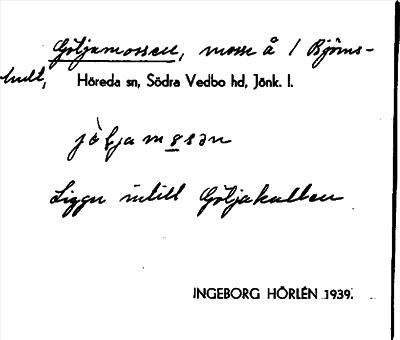 Göljamossen, mosse å 1 Björns-
hult,
Höreda sn, Södra Vedbo hd, Jönk. l.
jö̀ljamosən
Ligger intill Göljakullen
INGEBORG HÖRLÉN 1939.